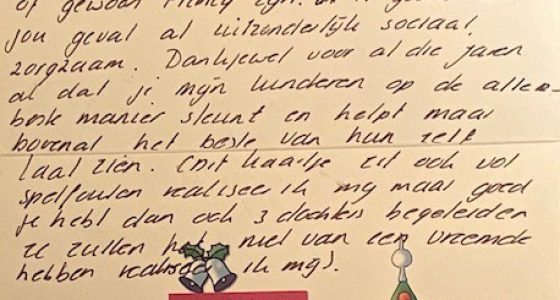 of gewoon
jou geval al uitzonderlijk sociaal,
zorgzaam. Dankjewel voor al die jaren
al dat je mijn kinderen op de aller-
beste manier steunt en helpt maar
bovenal het beste van hun zelf
laat zien. (Dit kaartje zit ook vol
spelfouten realiseer ik mij maar goed
je hebt dan ook 3 dochters begeleiden
ze zullen het niet van een vreemde
hebben realiseer ik mij).